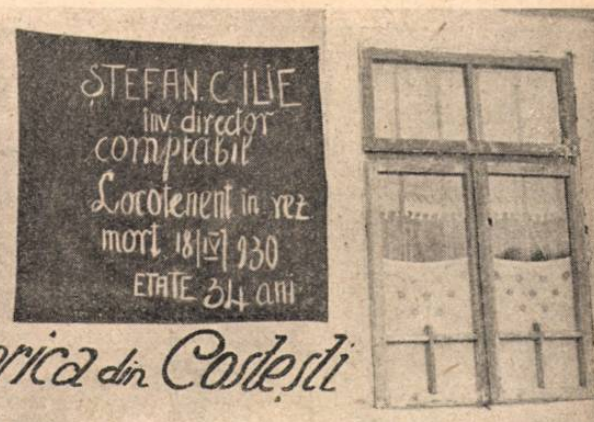 ȘTEFAN. C. ILIE
inv. director
comptabil
Locotenent in rez
mort 18|IV| 930
ETATE 34 ani
din Costești